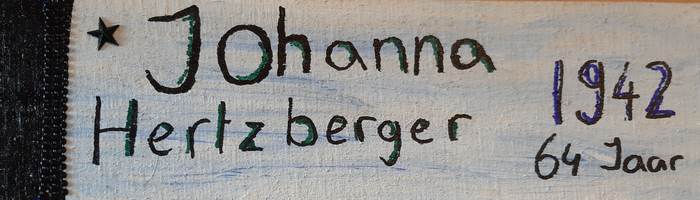 Johanna
Hertzberger
1942
64 Jaar